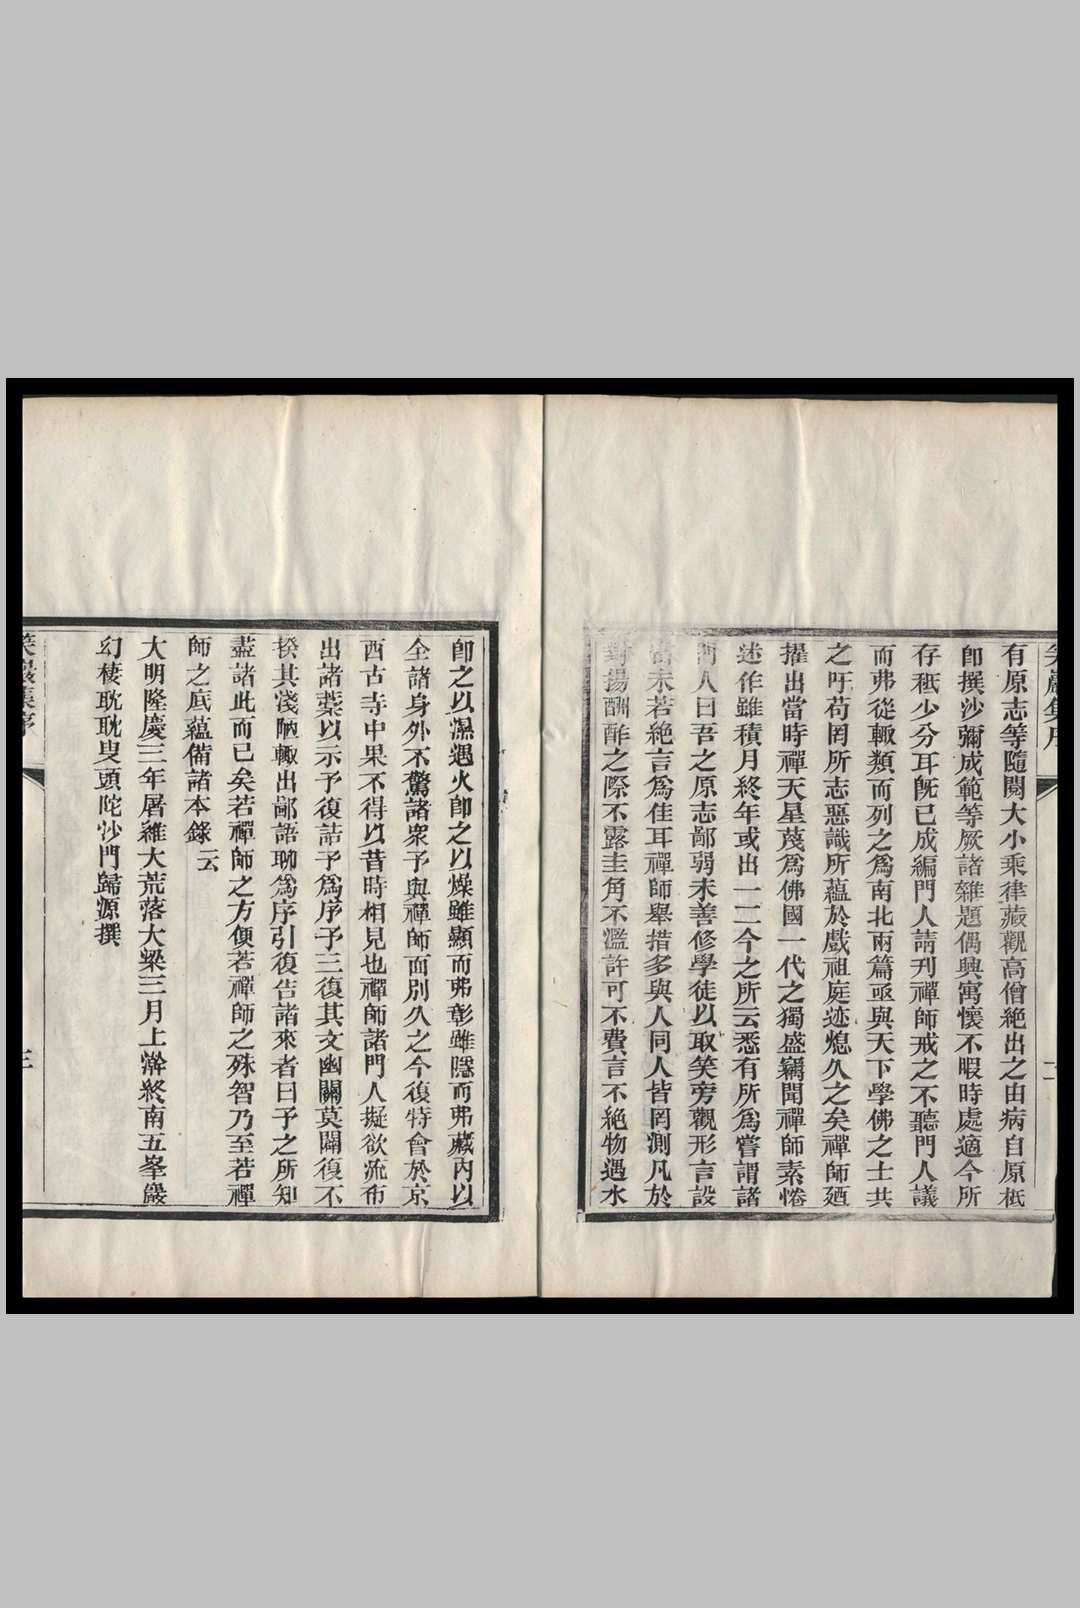 笑巖集序
二
有原志等隨閱大小乘律藏觀高僧絶出之由病自原柢
卽撰沙彌成範等厥諸雜題偶興寓懷不暇時處適今所
存秪少分耳旣已成編門人請刋禪師戒之不聽門人議
而弗從輙類而列之爲南北兩篇亟與天下學佛之士共
之吁苟罔所志惡識所蘊於戲祖庭迹熄久之矣禪師廼
擢出當時禪天星茂爲佛國一代之獨盛竊聞禪師素惓
述作雖積月終年或出一二今之所云悉有所爲嘗謂諸
門人曰吾之原志鄙弱未善修學徒以取笑旁觀形言設
當未若絶言爲佳耳禪師舉措多與人同人皆罔測凡於
對揚酬酢之際不露圭角不濫許可不費言不絶物遇水
卽之以濕遇火卽之以燥雖顯而弗彰雖隱而弗藏內以
全諸身外不驚諸衆予與禪師面別久之今復特會於京
西古寺中果不得以昔時相見也禪師諸門人擬欲流布
出諸藁以示予復誥予爲序予三復其文幽關莫闢復不
揆其淺陋輙出鄙語聊爲序引復告諸來者曰予之所知
盡諸此而已矣若禪師之方便若禪師之殊智乃至若禪
師之底蘊備諸本錄云
大明隆慶三年屠維大荒落大梁三月上澣終南五峯巖
幻棲耽耽叟頭陀沙門歸源撰
笑巖集序
三